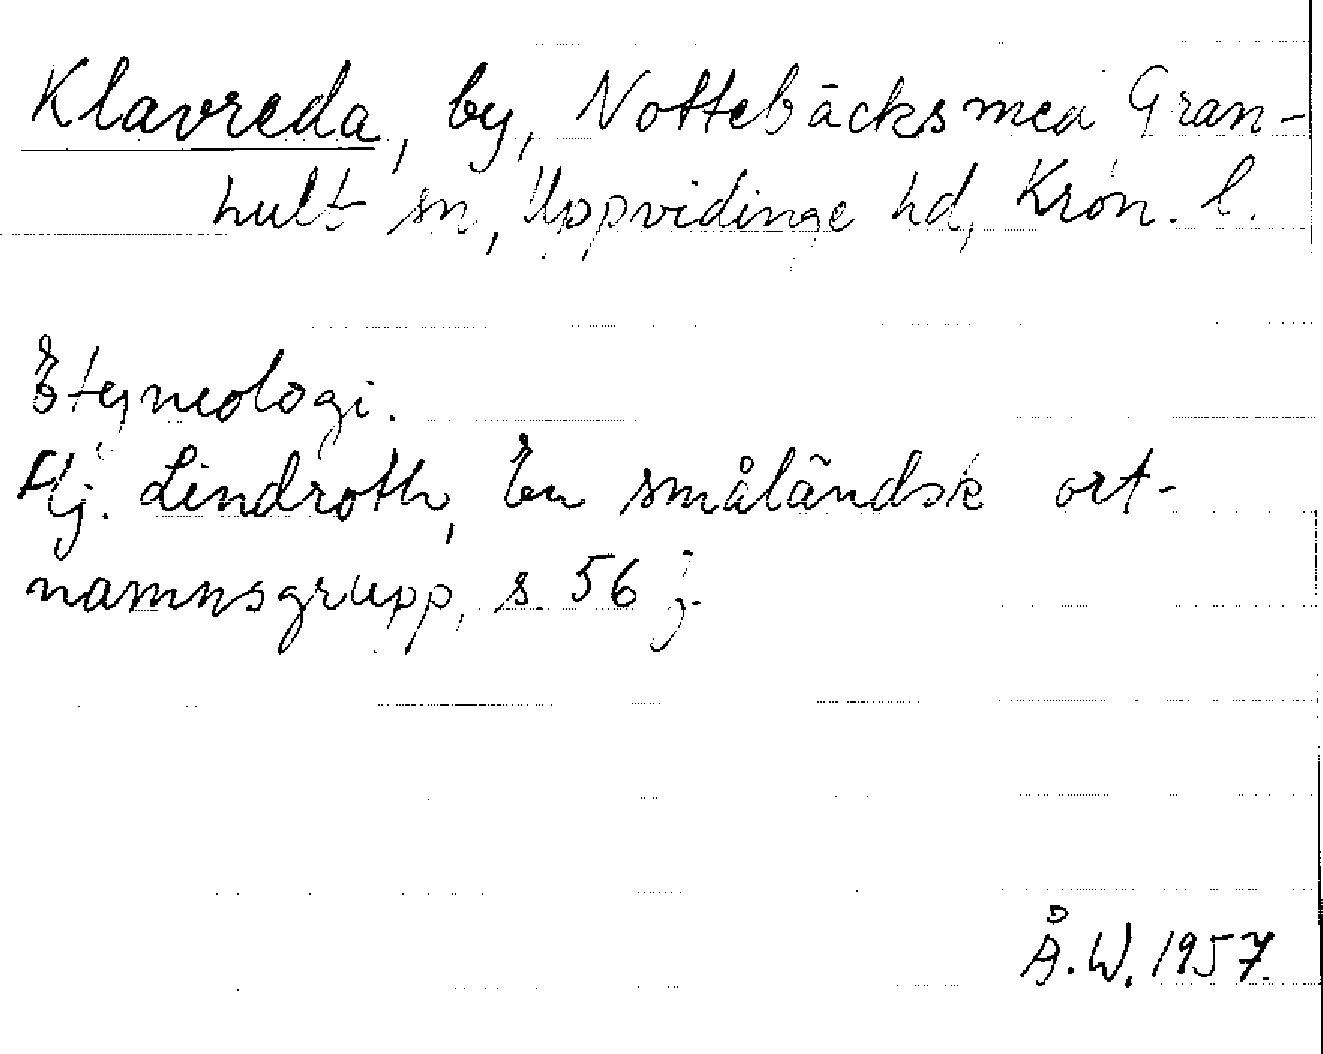 Klavreda, by, Nottebäcks med Gran-
hult sn, Uppvidinge hd, Kron. l.
Etymologi.
Hj. Lindroth, En småländsk ort-
namnsgrupp, s. 56 f.
Å.W. 1957.